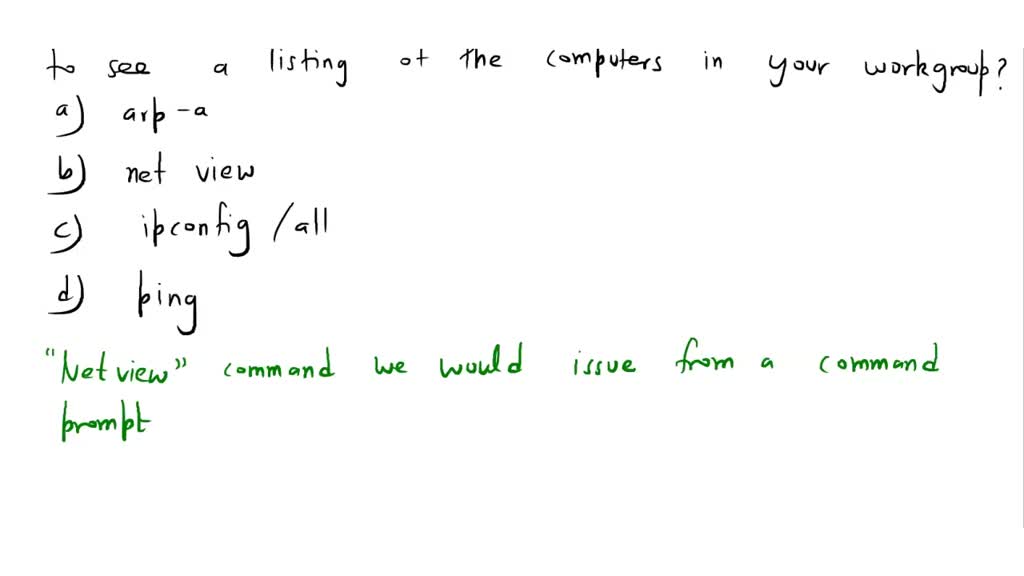 to see a listing of the computers in your workgroup?
a) arp -a
b) net view
c) ipconfig /all
d) ping
"Net view" command we would issue from a command
prompt